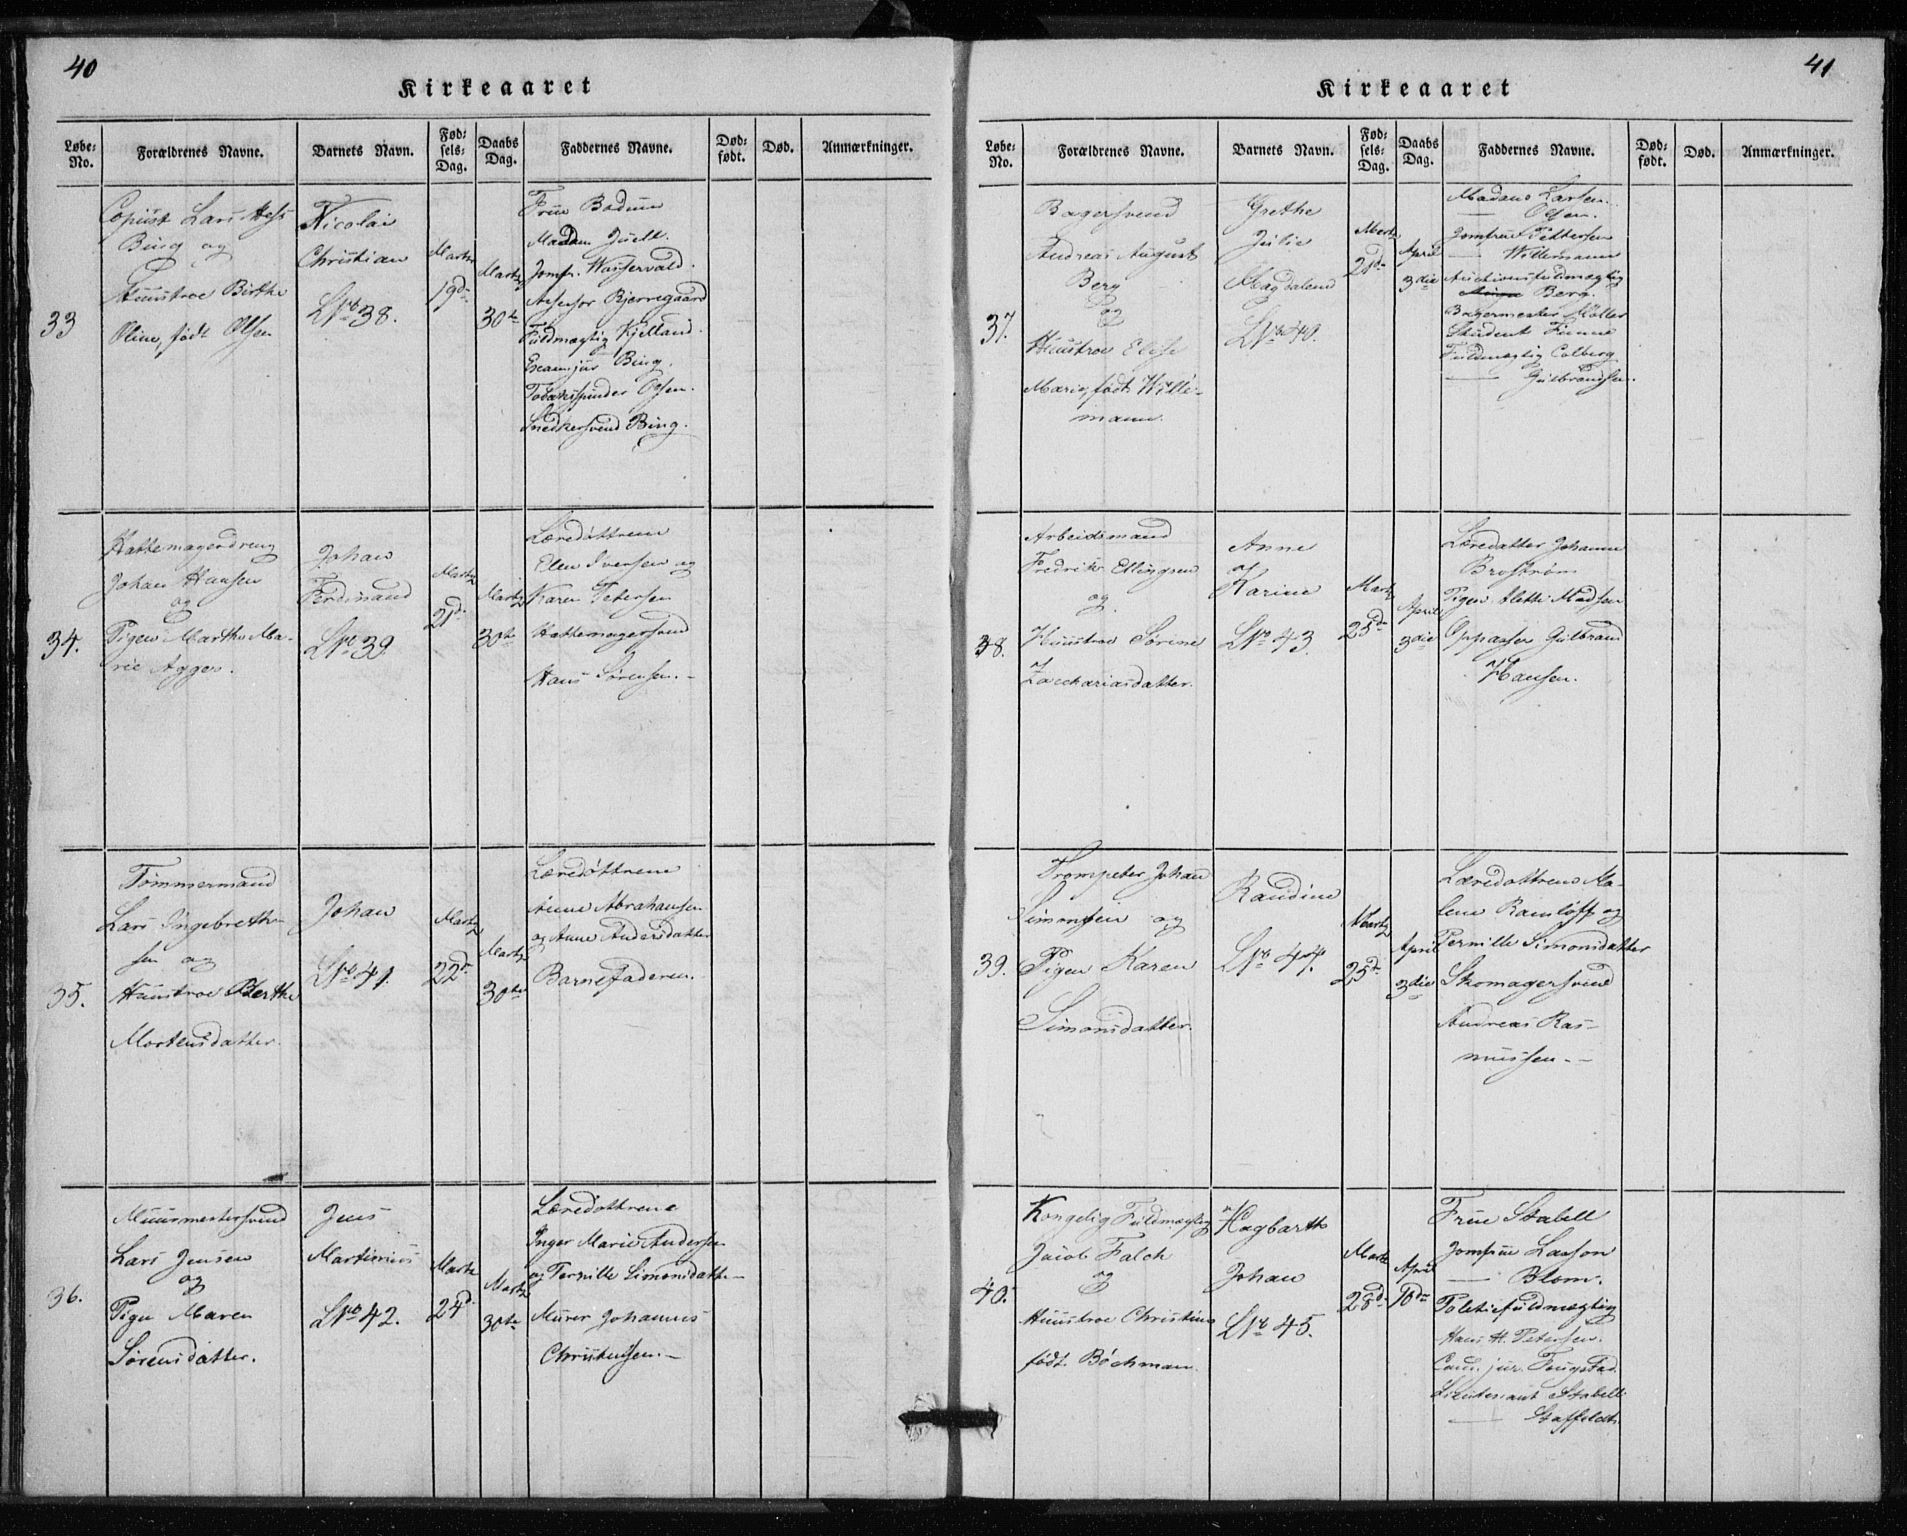 40
Kirkeaaret
Løbe-No.
Forældrenes Navne.
Barnets Navn.
Fødsels-Dag.
Daabs Dag.
Faddernes Navne.
Dødfødt.
Død.
Anmærkninger.
33
Copiist Lars Hess
Bing og
Huustroe Birthe
Oline, født Olsen
Nicolai
Christian
LNo 38.
Martz
19de
Martz
30te
Frue Bodum
Madam Juell.
Jomfr. Wasservald.
Assessor Bjerregaard
Fuldmægtig Kjelland.
Exam: jur Bing
Tobakspinder Olsen.
Snedkersvend Bing.
34.
Hattemagerdreng
Johan Hansen
og
Pigen Marthe Ma-
rie Agger.
Johan
Ferdinand
LNo 39
Martz
21de
Martz
30te
Læredøttrene
Elen Iversen og
Karen Petersen
Hattemagersvend
Hans Sørensen.-
35.
Tømmermand
Lars Ingebreth-
sen og
Huustroe Berthe
Mortensdatter.
Johan
LNo 41.
Martz
22de
Martz
30te
Læredøttrene
Anne Abrahamsen
og Anne Andersdatter
Barnefaderen.
36.
Muurmestersvend
Lars Jensen
og
Pigen Maren
Sørensdatter.
Jens
Martinius
LNo 42.
Martz
24de
Martz
30te
Læredøttrene
Inger Marie Andersen
og Pernille Simonsdatter-
Murer Johannes
Christensen.-
41
Kirkeaaret
Løbe-No.
Forældrenes Navne.
Barnets Navn.
Fødsels-Dag.
Daabs Dag.
Faddernes Navne.
Dødfødt.
Død.
Anmærkninger.
37.
Bagersvend
Andreas August
Berg
og
Huustroe Elise
Marie, født Wille-
mann.
Grethe
Julie
Magdalena
LNo 40.
Martz
21de
April
3die
Madame Larsen.
— Olsen.
Jomfrue Pettersen
— Willemann
Auctionsfuldmægtig
Berg.
Bagermester Møller
Student Finne
Fuldmægtig Colberg
— Gulbrandsen.
38.
Arbeidsmand
Fredrik Ellingsen
og
Huustroe Sørine
Zacchariasdatter.
Anne
og
Karine
LNo 43.
Martz
25de
April
3die
Læredatter Johanne
Brostrøm
Pigen Alethe Madsen
Oppasser Gulbrand
Hansen.
39.
Trompeter Johan
Simonsen og
Pigen Karen
Simonsdatter.
Randine
LNo 44.
Martz
25de
April
3die
Læredøttrene Ma-
lene Ramløff og
Pernille Simonsdatter
Skomagersvend
Andreas Ras-
mussen.-
40.
Kongelig Fuldmægtig
Jacob Falch
og
Huustroe Christine
født Bøchman.
Hagbarth
Johan
LNo 45.
Martz
28de
April
10de
Frue Stabell
Jomfrue Lasson
— Blom.
Politiefuldmægtig
Hans H. Petersen.
Cand. jur. Fougstad.
Lieutenant Stabell
— Staffeldt